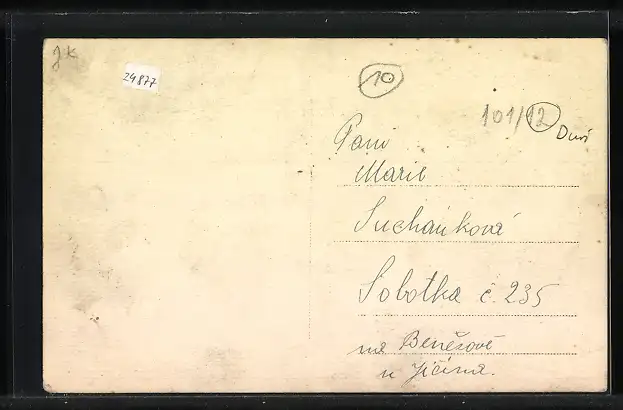 JK
24877
10
101/12
Paní
Marie
Suchánková
Sobotka č. 235
na Benešově
u Jičína.